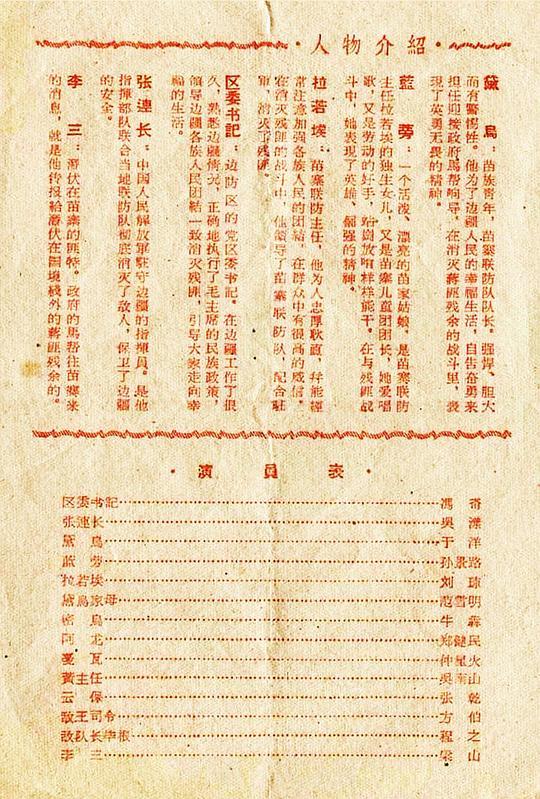 ·人物介紹·
黛 烏：苗族青年，苗寨联防队队长。强悍、胆大
而有警惕性。他为了边疆人民的幸福生活，自告奋勇来
担任迎接政府馬帮响导，在消灭蒋匪残余的战斗里，表
現了英勇无畏的精神。
藍 蒡：一个活泼、漂亮的苗家姑娘，是苗寨联防
主任拉若埃的独生女儿，又是苗寨儿童团团长，她爱唱
歌，又是劳动的好手，站崗放哨样样能干。在与残匪战
斗中，她表現了英雄、倔强的精神。
拉若埃：苗寨联防主任，他为人忠厚耿直，幷能經
常注意加强各族人民的团結，在群众中有很高的威信。
在消灭残匪的战斗中，他領导了苗寨联防队，配合駐
軍，消灭了残匪。
区委书記：边防区的党区委书記。在边疆工作了很
久，熟悉边疆情况，正确地执行了毛主席的民族政策，
領导边疆各族人民团結一致消灭残匪，引导大家走向幸
福的生活。
张連长：中国人民解放軍駐守边疆的指揮員。是他
指揮部队联合当地联防队彻底消灭了敌人，保卫了边疆
的安全。
李 三：潛伏在苗寨的匪特。政府的馬帮往苗鄉来
的消息，就是他傳报給潛伏在国境綫外的蒋匪残余的。
·演員表·
区委书記……馮 奇
张連长……吳 漾
黛 烏……于 洋
蓝 蒡……孙景路
拉若埃……刘 琼
黛烏家母……范雪明
密 烏……牛 犇
阿 龙……郑健民
戛 瓦……仲星火
黃主任……吳南山
云 保……张 乾
敌王司令……方 伯
敌队长 ……程 之
李 三……梁 山